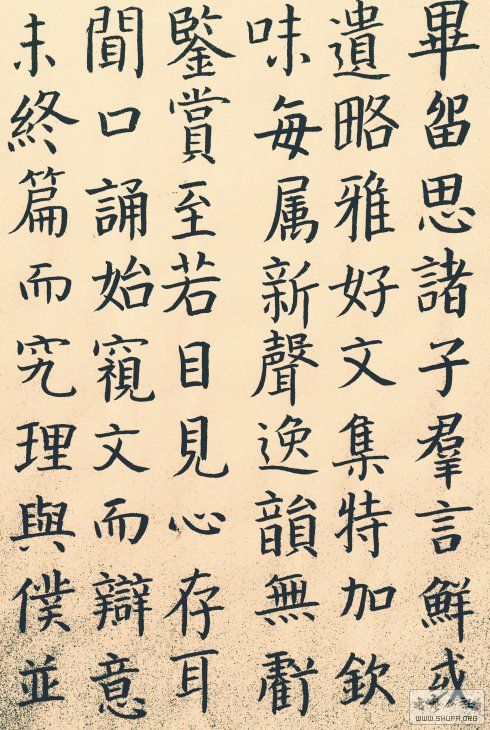 畢留思諸子羣言鮮或
遺略雅好文集特加欽
味每属新聲逸韻無虧
鑒賞至若目見心存耳
聞口誦始窺文而辯意
未終篇而究理與僕並
WWW.SHUFA.ORG